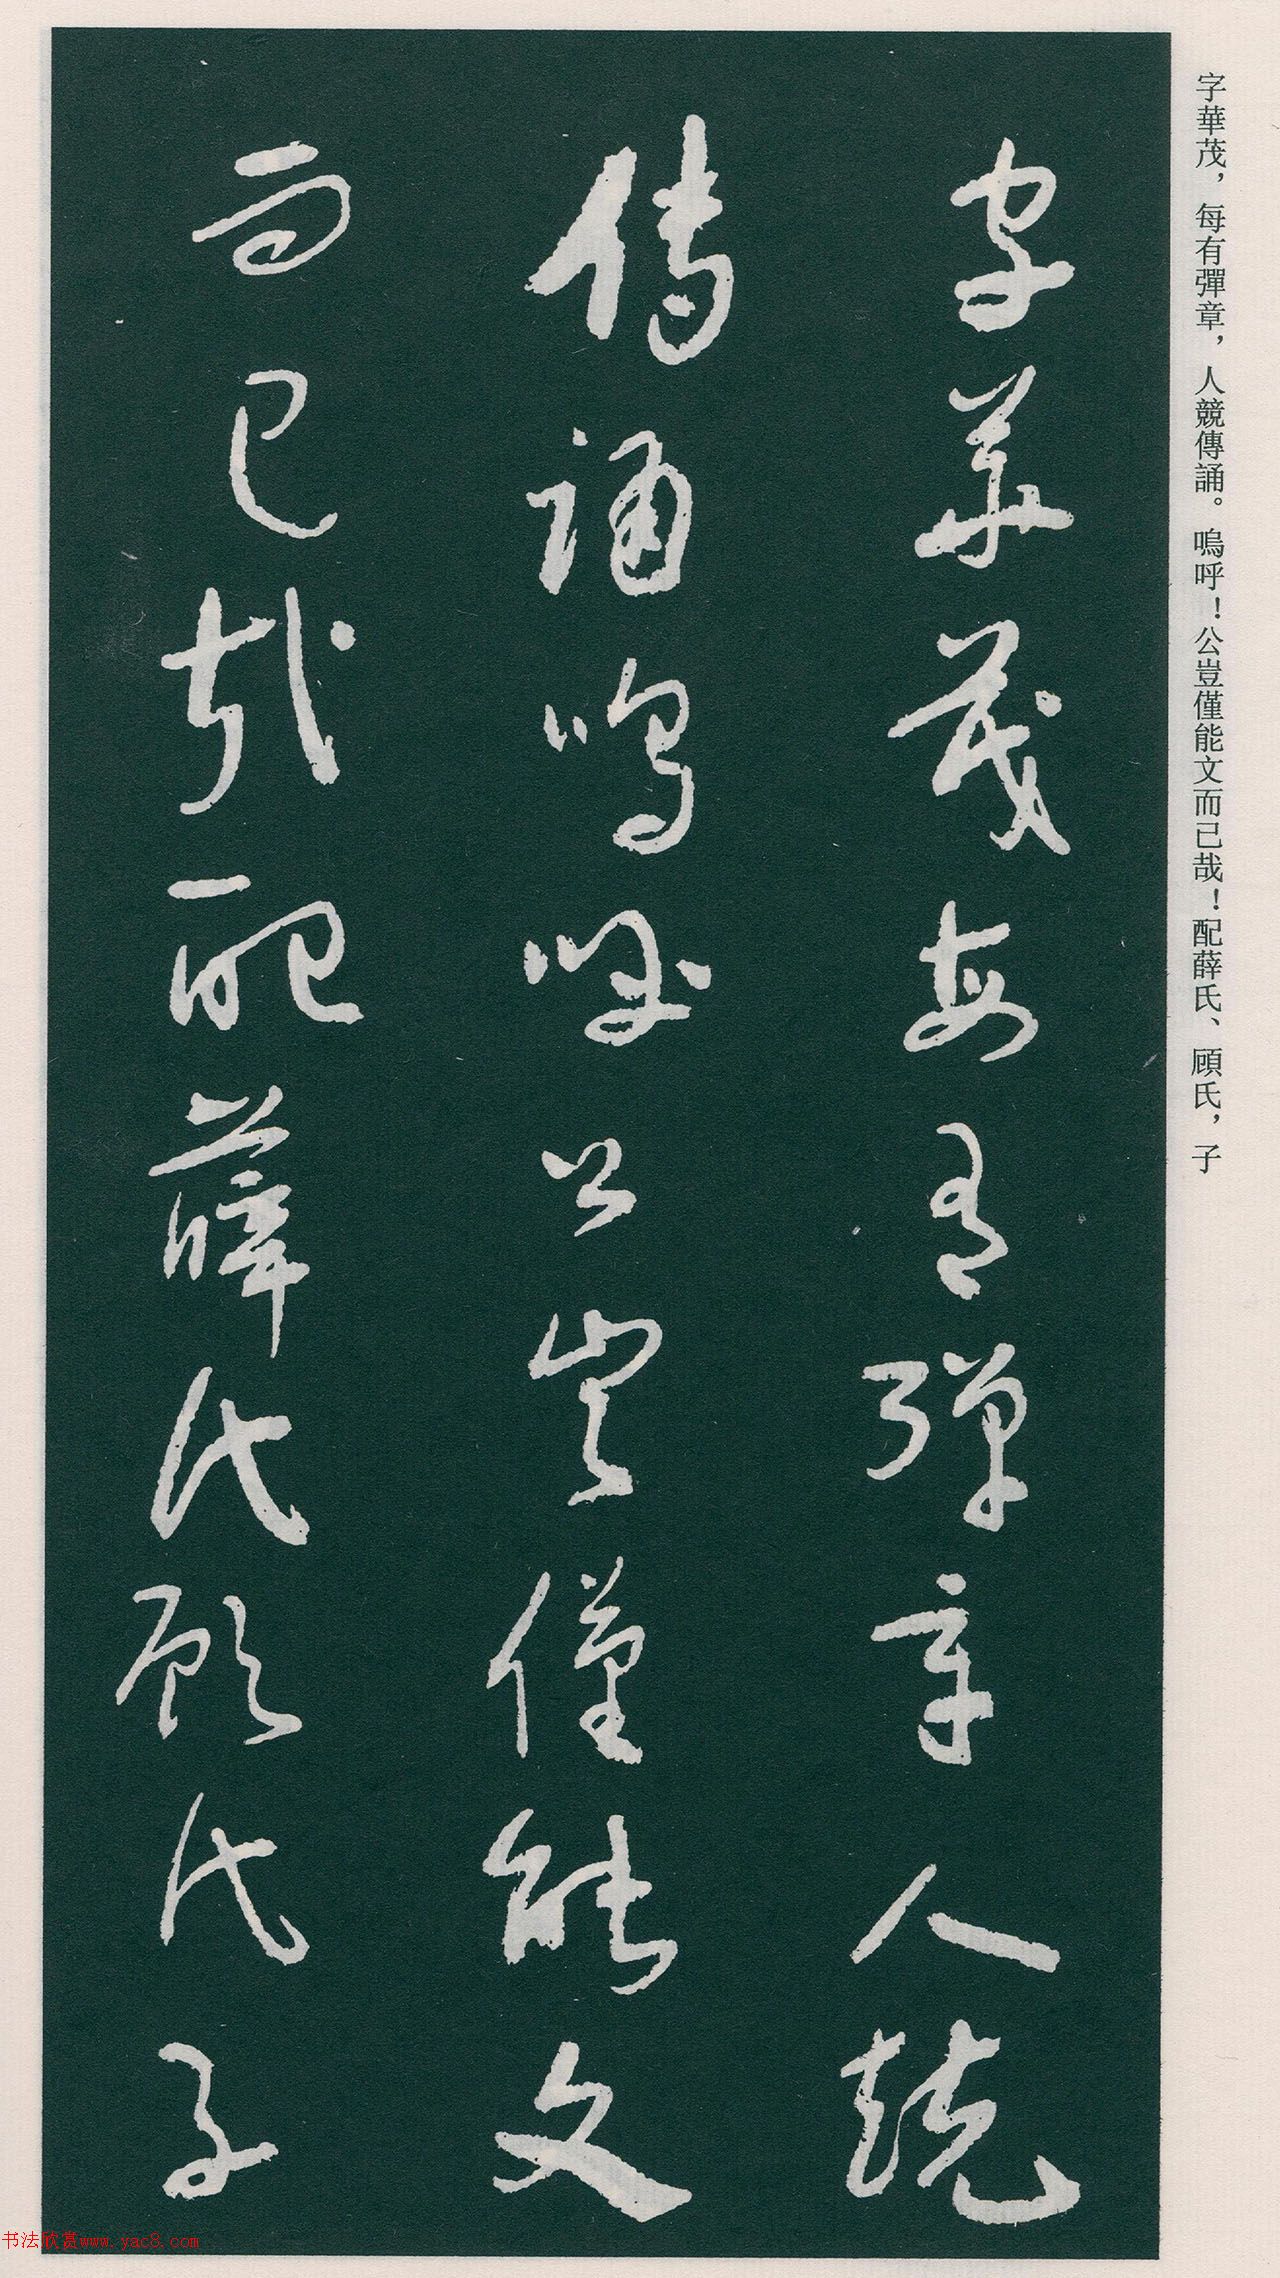 字華茂，每有彈章，人競傳誦。嗚呼！公豈僅能文而已哉！配薛氏、顾氏，子
字華茂每有彈章人競
傳誦嗚呼公豈僅能文
而已哉配薛氏顧氏子
书法欣赏www.yac8.com